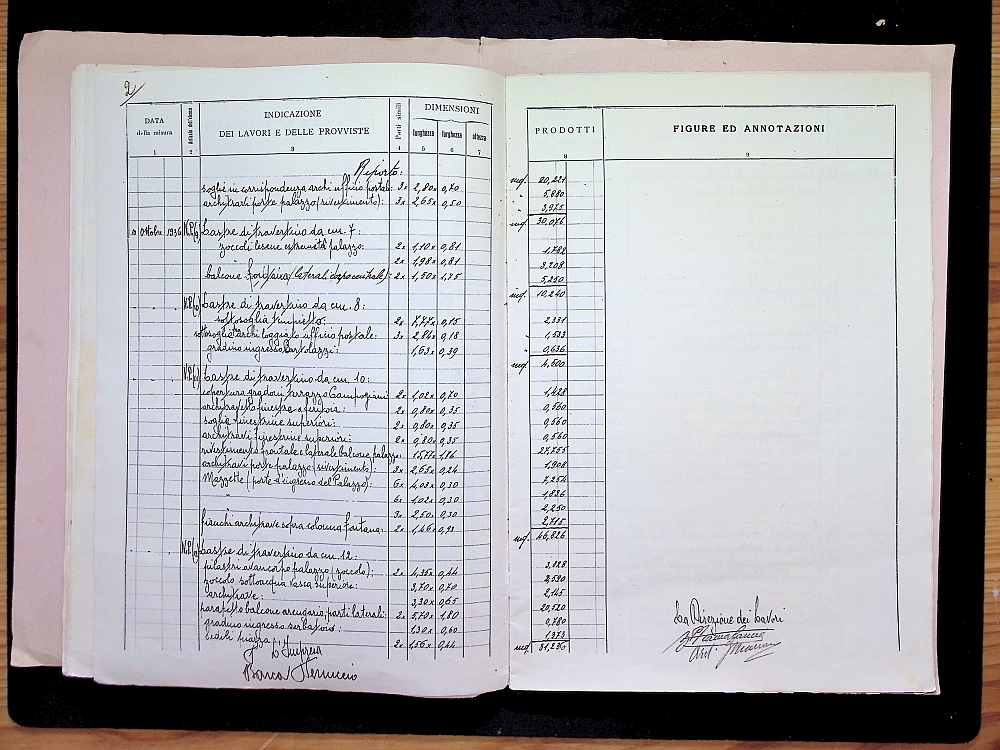 2/
DATA della misura
Articolo dell'elenco
INDICAZIONE DEI LAVORI E DELLE PROVVISTE
Parti simili
DIMENSIONI
lunghezza larghezza altezza
1 2 3 4 5 6 7
PRODOTTI
FIGURE ED ANNOTAZIONI
8 9
Riporto: mq. 20,221
soglie in corrispondenza archi ufficio postale: 3x 2,80x 0,70 5,880
architravi porte palazzo (rivestimento): 3x 2,65x 0,50 3,975
mq. 30,076
10 Ottobre 1936 N.P.(9) Lastre di travertino da cm. 7:
zoccoli lesene estremità palazzo: 2x 1,10x 0,81 1,782
2x 1,98x 0,81 3,208
balcone (laterali corpo centrale): 2x 1,50x 1,75 5,250
mq. 10,240
N.P.(10) Lastre di travertino da cm. 8:
sottosoglia 2x 7,77x 0,15 2,331
sottosoglia archi loggiato ufficio postale: 3x 2,84x 0,18 1,533
gradino ingresso 1,63x 0,39 0,636
mq. 4,500
N.P.(11) Lastre di travertino da cm. 10:
copertura gradoni terrazzo Campogiani 2x 1,02x 0,70 1,428
architravetto finestra a feritoia: 2x 0,80x 0,35 0,560
soglia finestrine superiori: 2x 0,80x 0,35 0,560
architravi finestrine superiori: 2x 0,80x 0,35 0,560
rivestimento frontale e laterale balcone palazzo 15,77x 1,76 27,755
architravi porte palazzo (rivestimento): 3x 2,65x 0,24 1,908
Mazzette (porte d'ingresso del Palazzo): 6x 4,03x 0,30 7,254
" 6x 1,02x 0,30 1,836
3x 2,50x 0,30 2,250
fianchi architrave sopra colonna fontana: 2x 1,46x 0,93 2,715
mq. 46,826
Lastre di travertino da cm. 12:
pilastri avancorpo palazzo (zoccolo); 2x 4,35x 0,44 3,828
zoccolo sottoacqua vasca superiore: 3,70x 0,70 2,590
architrave: 3,30x 0,65 2,145
parapetto balcone arengario; parti laterali: 2x 5,70x 1,80 20,520
gradino ingresso serbatoio: 1,30x 0,60 0,780
sedili piazza 2x 1,56x 0,44 1,373
mq. 31,236
L'Impresa
Barca Ferruccio
La Direzione dei Lavori